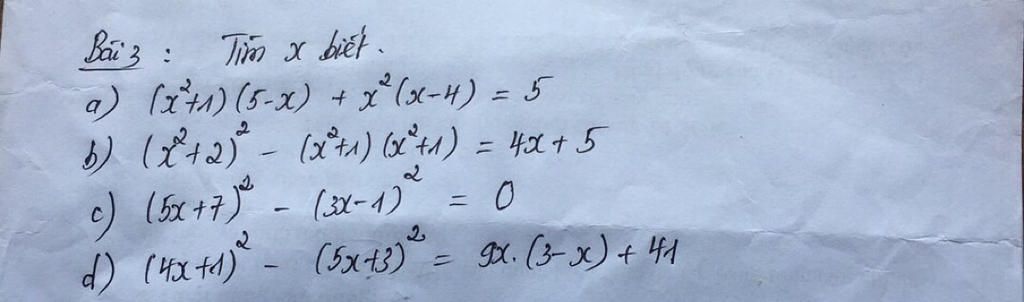 Bài 3 : Tìm x biết.
a) (x²+1)(5-x) + x²(x-4) = 5
b) (x²+2)² - (x²+1)(x²+1) = 4x+5
c) (5x+7)² - (3x-1)² = 0
d) (4x+1)² - (5x+3)² = 9x.(3-x) + 41